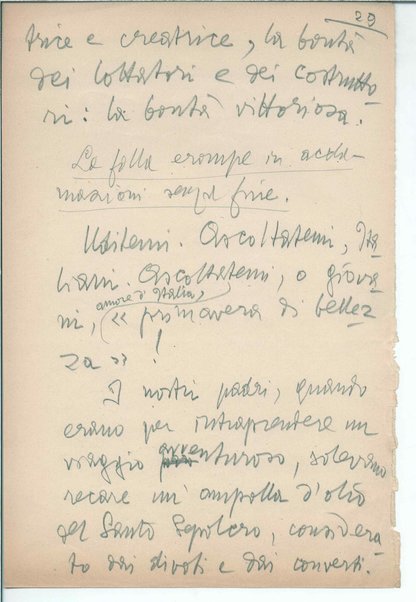 29
trice e creatrice, la bontà
dei lottatori e dei costrutto-
ri: la bontà vittoriosa.
La folla erompe in accla-
mazioni senza fine.
Uditemi. Ascoltatemi, Ita-
liani. Ascoltatemi, o giova-
amore d'Italia,
ni, « primavera di bellez-
za » !
I nostri padri, quando
erano per intraprendere un
viaggio avventuroso, solevano
recare un' ampolla d'olio
del Santo Sepolcro, considera-
to dai divoti e dai converti.